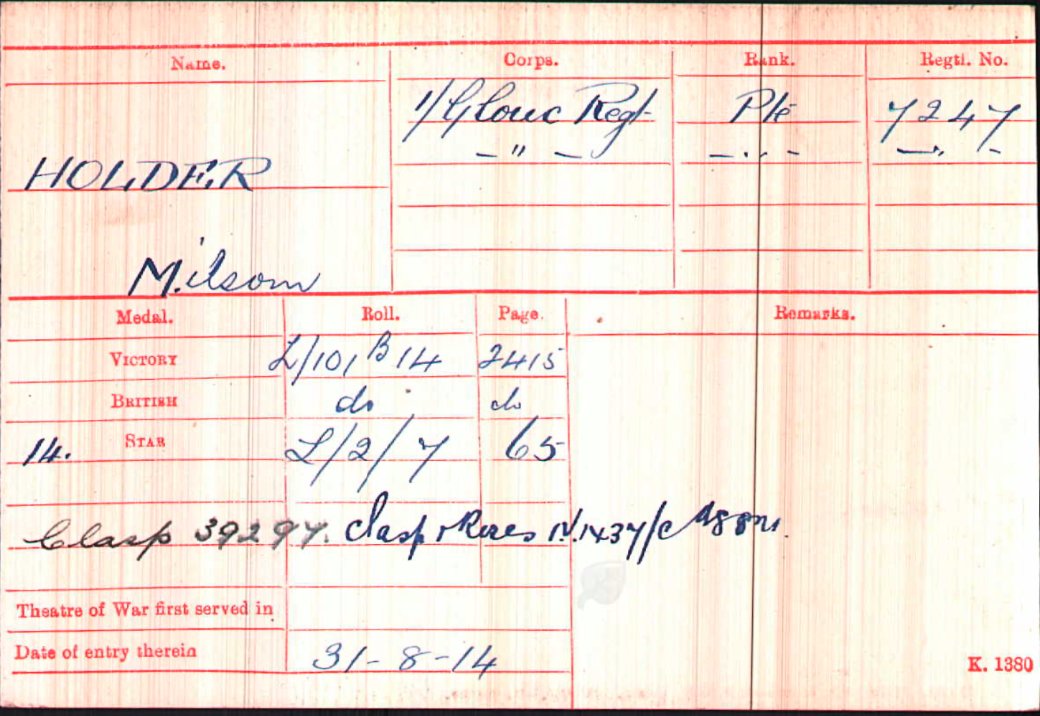 Name. Corps. Rank. Regtl. No.
1/Glouc Regt Pte 7247
- " - - " - - " -
HOLDER
Milsom
Medal. Roll. Page. Remarks.
VICTORY L/101 B14 2415
BRITISH do do
14. STAR L/2/7 65
Clasp 39297. Clasp & Roses IV.1437/c
Theatre of War first served in
Date of entry therein 31-8-14
K. 1380